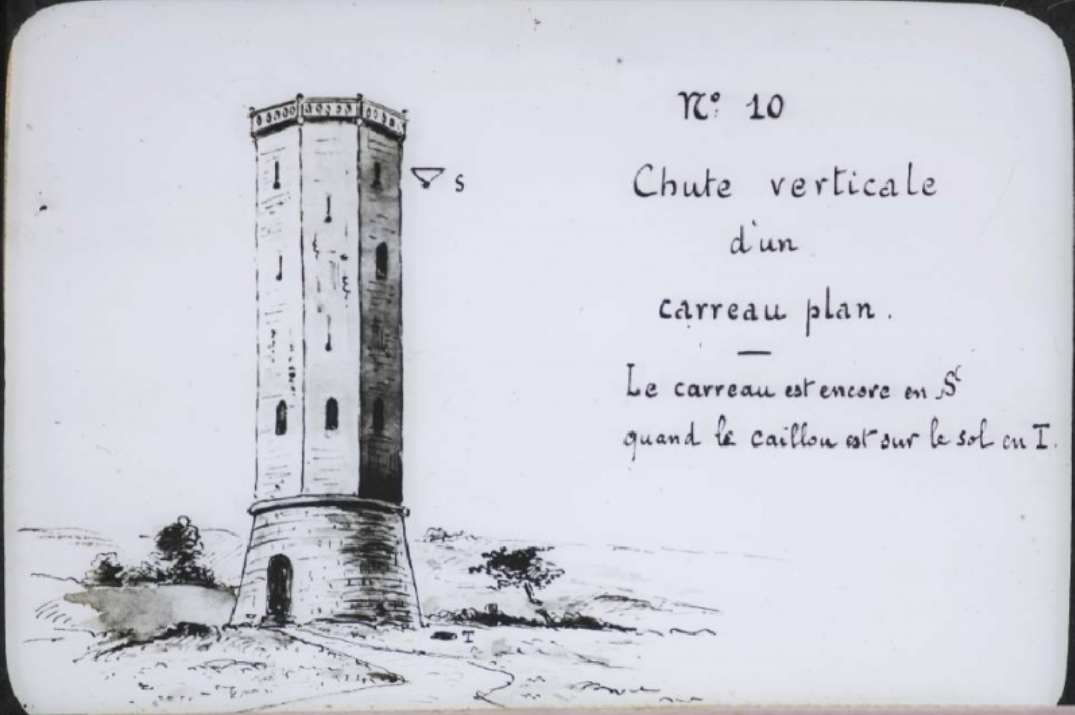 N° 10
Chute verticale
d'un
carreau plan.
Le carreau est encore en S
quand le caillou est sur le sol en T.
S
T